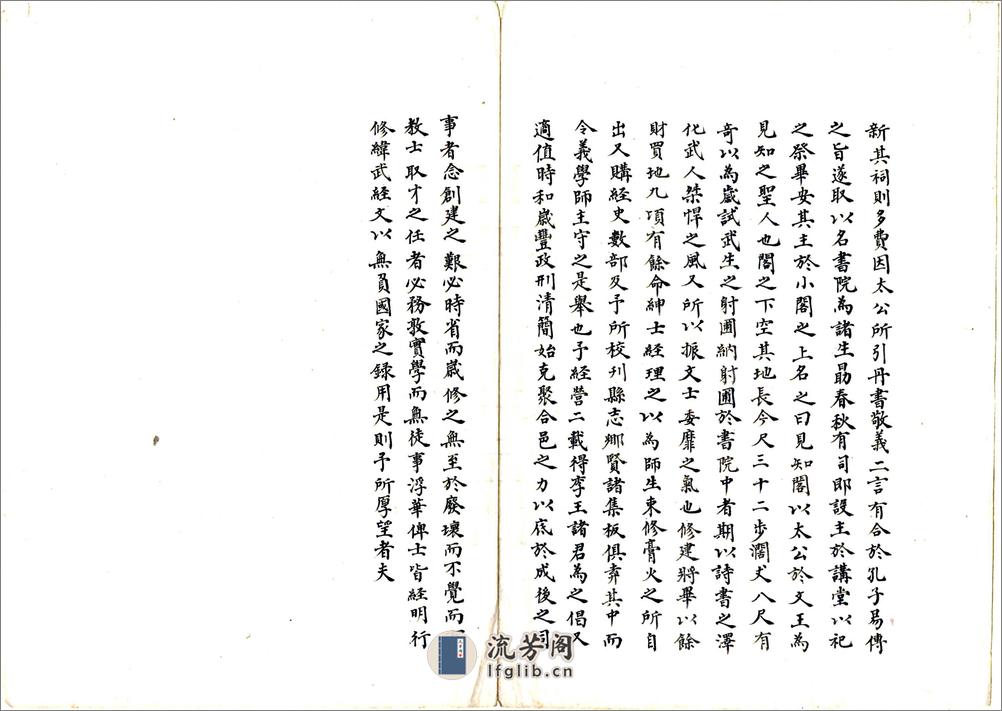 新其祠則多費因太公所引丹書敬義二言有合於孔子易傳
之旨遂取以名書院為諸生勗春秋有司即設主於講堂以祀
之祭畢安其主於小閣之上名之曰見知閣以太公於文王為
見知之聖人也閣之下空其地長今尺三十二步濶丈八尺有
奇以為歲試武生之射圃納射圃於書院中者期以詩書之澤
化武人桀悍之風又所以振文士委靡之氣也修建將畢以餘
財買地九項有餘命紳士經理之以為師生束修膏火之所自
出又購經史數部及予所校刊縣志鄉賢諸集板俱弆其中而
令義學師主守之是舉也予經營二載得李王諸君為之倡又
適值時和歲豐政刑清簡始克聚合邑之力以底於成後之司
事者念創建之艱必時省而歲修之無至於廢壞而不覺而
教士取才之任者必務敦實學而無徒事浮華俾士皆經明行
修緯武經文以無負國家之録用是則予所厚望者夫
流芳阁
lfglib.cn